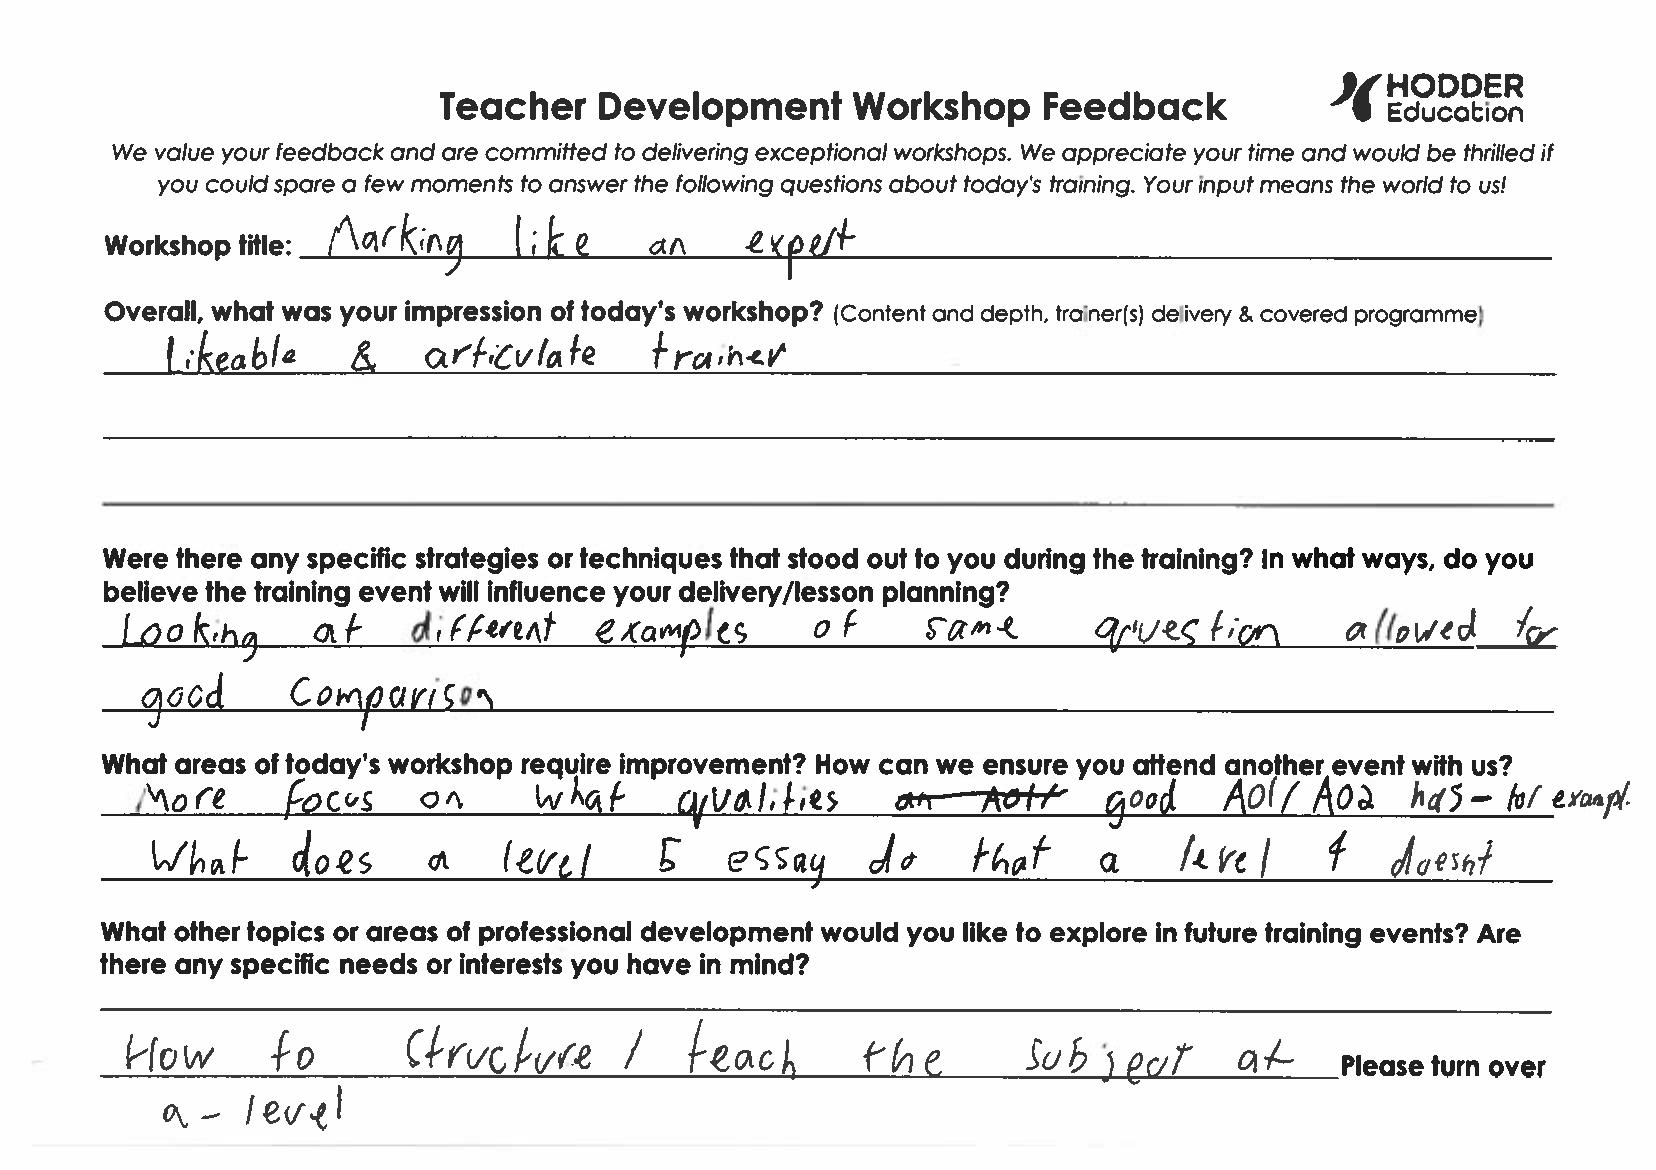 HODDER
Education
Teacher Development Workshop Feedback
We value your feedback and are committed to delivering exceptional workshops. We appreciate your time and would be thrilled if
you could spare a few moments to answer the following questions about today's training. Your input means the world to us!
Workshop title: Marking like an expert
Overall, what was your impression of today's workshop? (Content and depth, trainer(s) delivery & covered programme)
Likeable & articulate trainer
Were there any specific strategies or techniques that stood out to you during the training? In what ways, do you
believe the training event will influence your delivery/lesson planning?
Looking at different examples of same question allowed for
good Comparison
What areas of today's workshop require improvement? How can we ensure you attend another event with us?
More focus on what qualities good AO1/AO2 has - for exampl.
What does a level 5 essay do that a level 4 doesnt
What other topics or areas of professional development would you like to explore in future training events? Are
there any specific needs or interests you have in mind?
How to Structure / teach the Subject at Please turn over
a - level